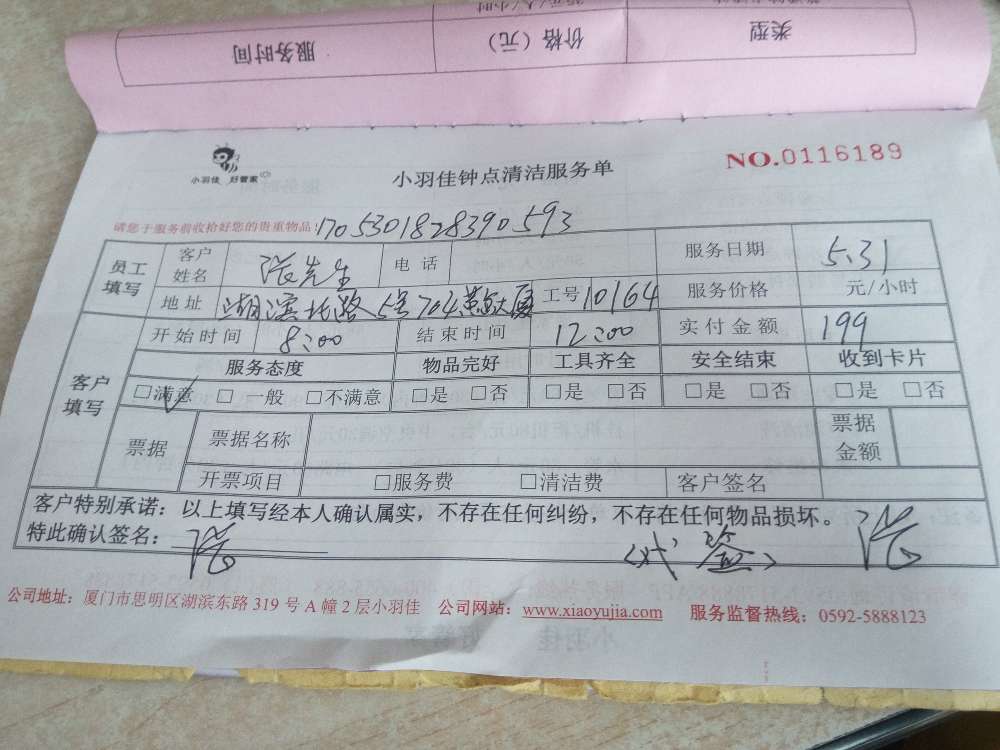 类型 价格（元） 服务时间
小羽佳 好管家
小羽佳钟点清洁服务单
NO.0116189
请您于服务前收拾好您的贵重物品！1705301828390593
员工填写 客户姓名 张先生 电话 服务日期 5.31
地址 湖滨北路5号704 工号 10164 服务价格 元/小时
客户填写 开始时间 8:00 结束时间 12:00 实付金额 199
服务态度 物品完好 工具齐全 安全结束 收到卡片
□满意 ✓ □ 一般 □不满意 □是 □否 □是 □否 □是 □否 □是 □否
票据 票据名称 票据金额
开票项目 □服务费 □清洁费 客户签名
客户特别承诺：以上填写经本人确认属实，不存在任何纠纷，不存在任何物品损坏。
特此确认签名：张 （代签） 张
公司地址：厦门市思明区湖滨东路 319 号 A 幢 2 层小羽佳 公司网站：www.xiaoyujia.com 服务监督热线：0592-5888123